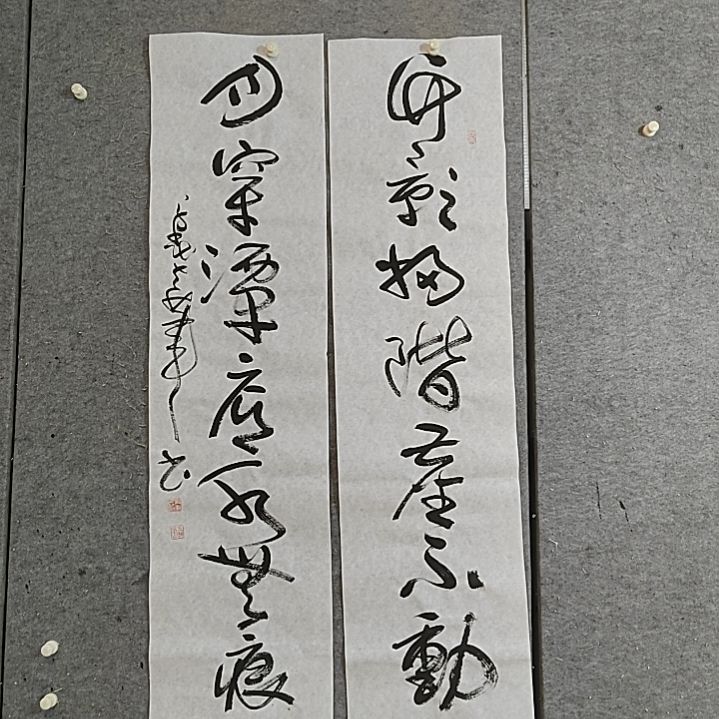 竹影掃階塵不動
月穿潭底水無痕
書